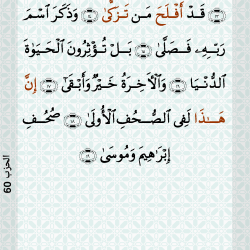 ﴿١٣﴾ قَدْ أَفْلَحَ مَن تَزَكَّىٰ ﴿١٤﴾ وَذَكَرَ ٱسْمَ
رَبِّهِۦ فَصَلَّىٰ ﴿١٥﴾ بَلْ تُؤْثِرُونَ ٱلْحَيَوٰةَ
ٱلدُّنْيَا ﴿١٦﴾ وَٱلْأَخِرَةُ خَيْرٌ وَأَبْقَىٰٓ ﴿١٧﴾ إِنَّ
هَـٰذَا لَفِى ٱلصُّحُفِ ٱلْأُولَىٰ ﴿١٨﴾ صُحُفِ
إِبْرَٰهِيمَ وَمُوسَىٰ ﴿١٩﴾
الحزب 60